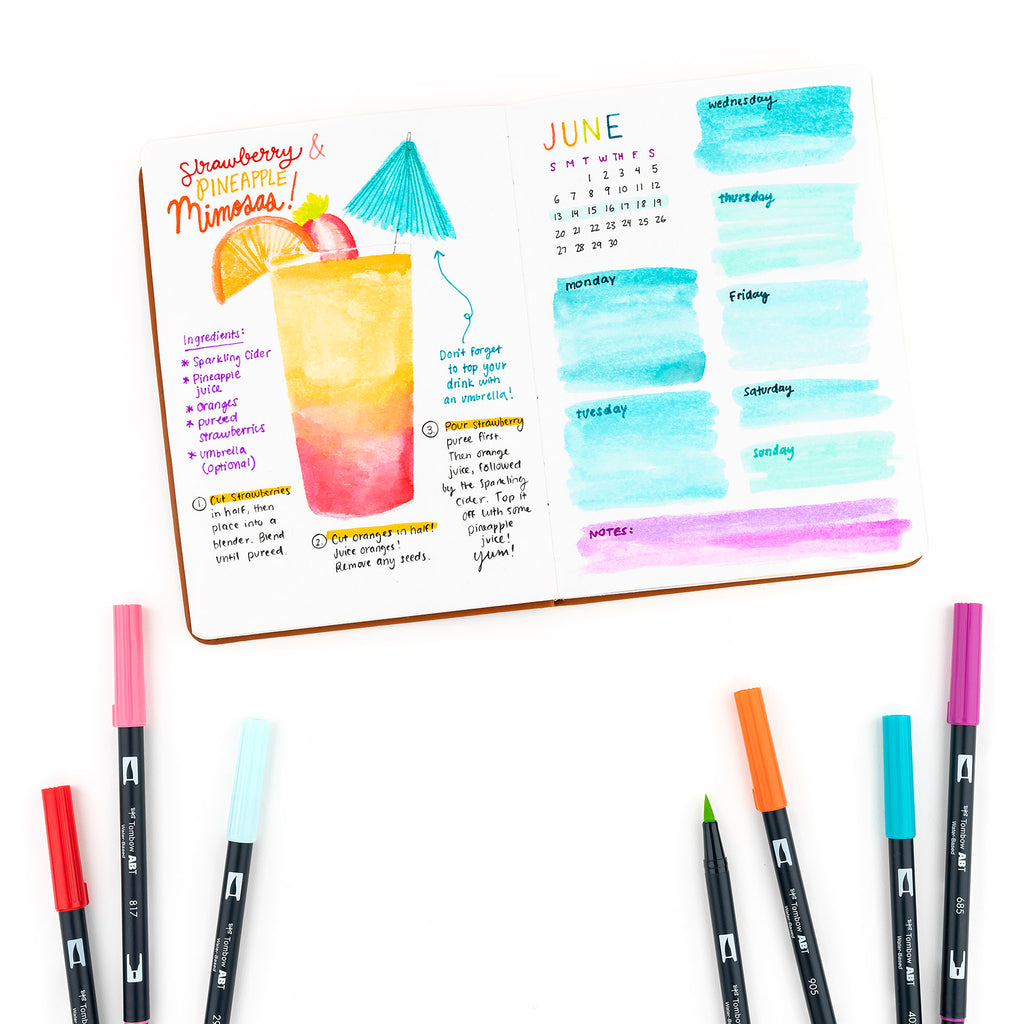 Strawberry &
PINEAPPLE
Mimosas!
Ingredients:
* Sparkling Cider
* Pineapple
juice
* Oranges
* pureed
strawberries
* umbrella
(optional)
1. Cut Strawberries
in half, then
place into a
blender. Blend
until pureed.
2. Cut oranges in half!
Juice oranges!
Remove any seeds.
Don't forget
to top your
drink with
an umbrella!
3. Pour strawberry
puree first.
Then orange
juice, followed
by the sparkling
cider. Top it
off with some
pineapple
juice!
yum!
JUNE
S M T W TH F S
1 2 3 4 5
6 7 8 9 10 11 12
13 14 15 16 17 18 19
20 21 22 23 24 25 26
27 28 29 30
monday
tuesday
wednesday
thursday
Friday
Saturday
Sunday
NOTES:
Tombow ABT
Water-Based
817
Tombow ABT
Water-Based
Tombow ABT
Water-Based
905
Tombow ABT
Water-Based
Tombow ABT
Water-Based
685